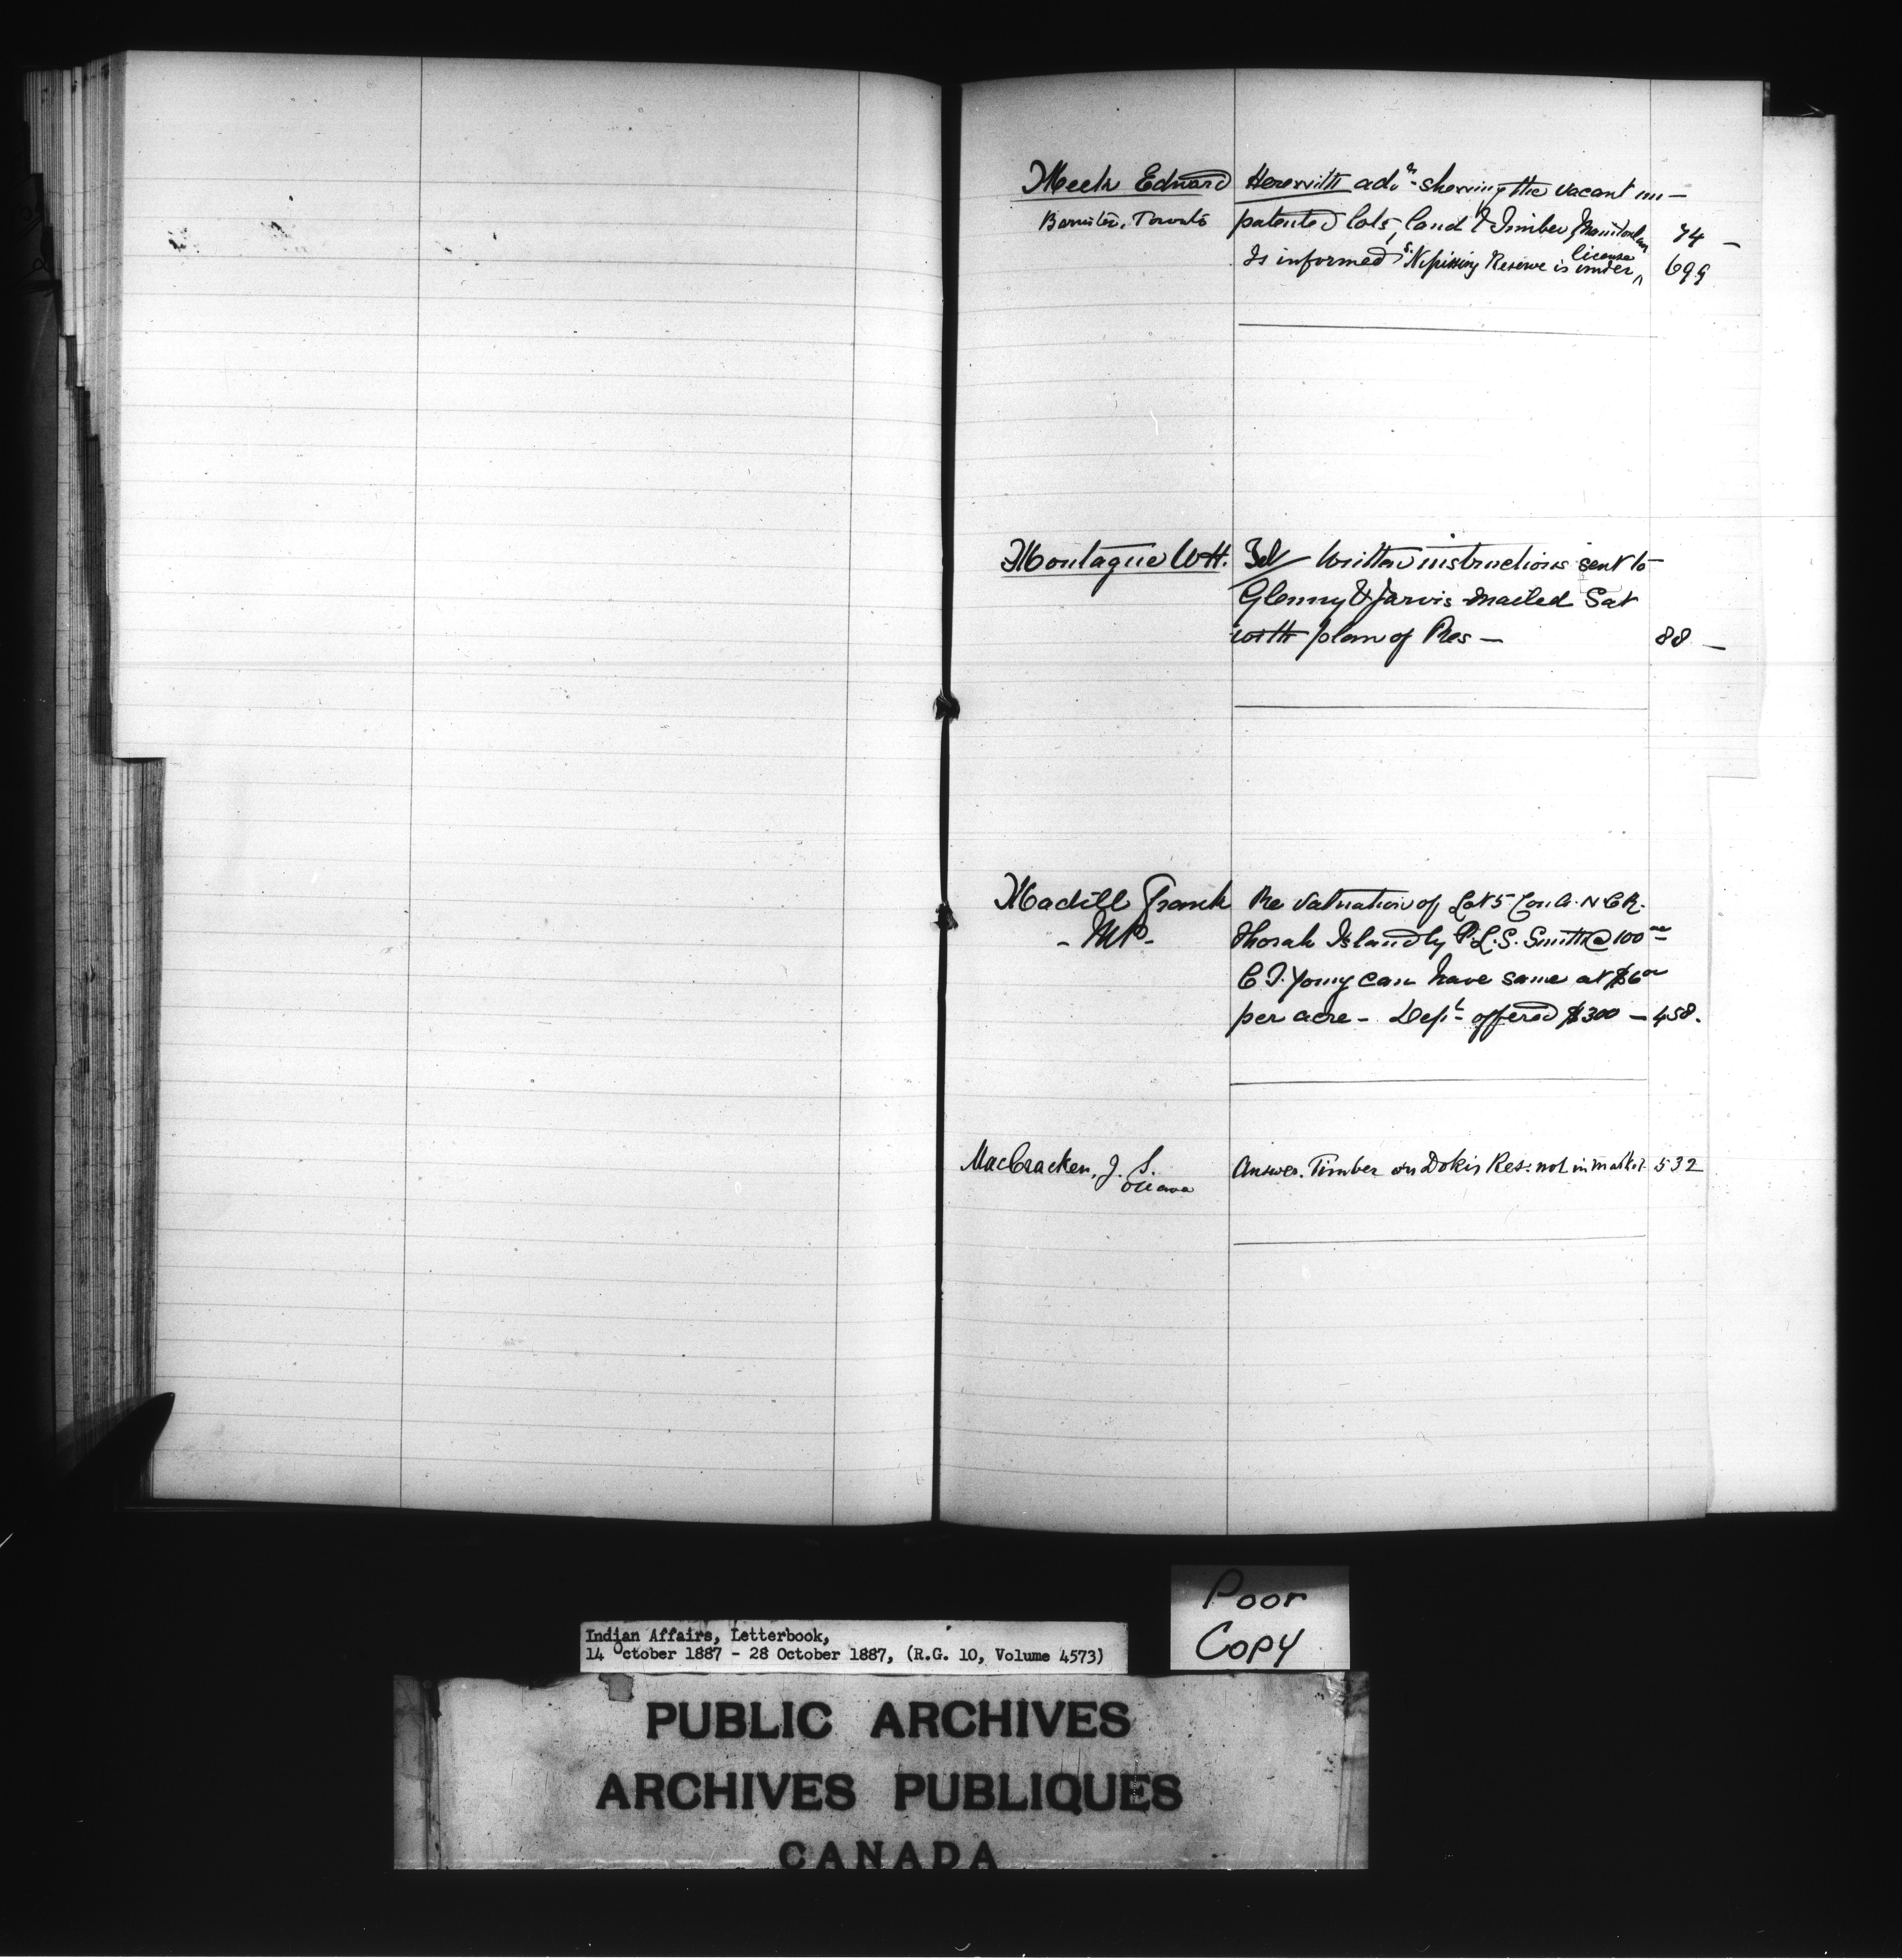 Meek Edward Herewith advn shewing the vacant un-
Barrister, Toronto patented lots, land & Timber Manitoulin 74 -
Is informed Nipissing Reserve is under license 699
Montague W H. Tel/ Written instructions sent to
Glenny & Jarvis mailed Sat
with plan of Res — 88 -
Madill Frank Re Valuation of Lot 5 Con A. N C R.
- MP - Thorah Island by P.L.S. Smith @ 100 oo
C T. Young can have same at $6 oo
per acre - Dept offered $300 — 458.
MacCracken, J. S. Answer. Timber on Dokis Res: not in market 532
Ottawa
Poor
Copy
Indian Affairs, Letterbook,
14 October 1887 - 28 October 1887, (R.G. 10, Volume 4573)
PUBLIC ARCHIVES
ARCHIVES PUBLIQUES
CANADA